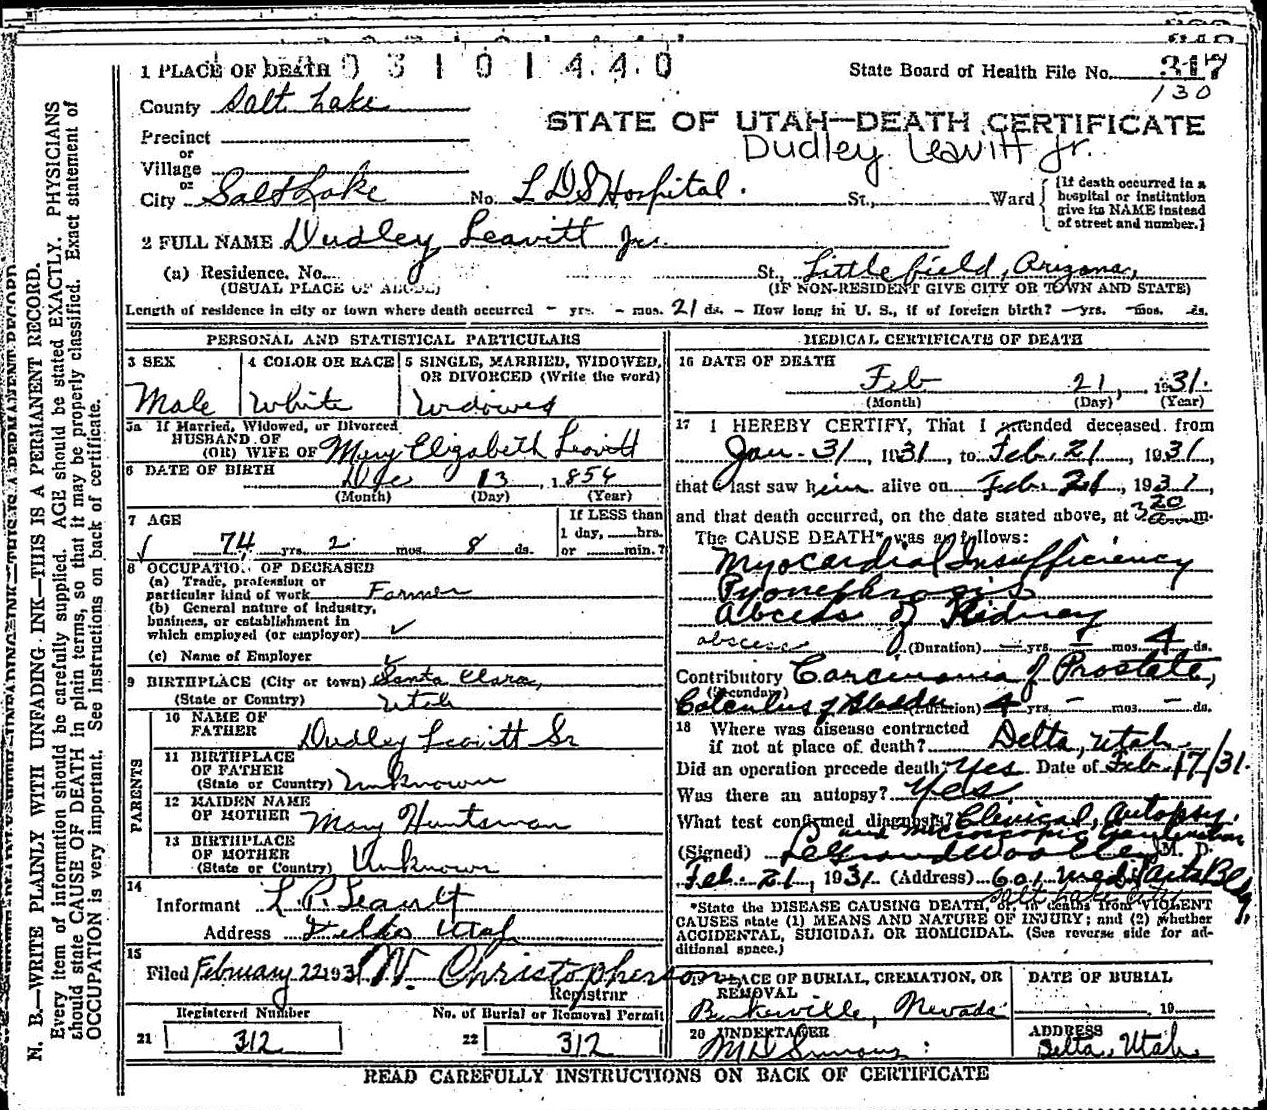 1 PLACE OF DEATH 0 3 1 0 1 4 4 0
State Board of Health File No. 317
130
County Salt Lake
STATE OF UTAH—DEATH CERTIFICATE
Dudley Leavitt Jr.
Precinct
or
Village
or
City Salt Lake No. L D S Hospital. St., Ward
[If death occurred in a hospital or institution give its NAME instead of street and number.]
2 FULL NAME Dudley Leavitt Jr.
(a) Residence. No. St., Littlefield, Arizona,
(USUAL PLACE OF ABODE) (IF NON-RESIDENT GIVE CITY OR TOWN AND STATE)
Length of residence in city or town where death occurred - yrs. - mos. 21 ds. - How long in U. S., if of foreign birth? - yrs. - mos. - ds.
PERSONAL AND STATISTICAL PARTICULARS
3 SEX
Male
4 COLOR OR RACE
White
5 SINGLE, MARRIED, WIDOWED,
OR DIVORCED (Write the word)
Widowed
5a If Married, Widowed, or Divorced
HUSBAND OF
(OR) WIFE OF Mary Elizabeth Leavitt
6 DATE OF BIRTH
Dec 13, 1856
(Month) (Day) (Year)
7 AGE
74 yrs. 2 mos. 8 ds.
If LESS than
1 day, hrs.
or min.?
8 OCCUPATION OF DECEASED
(a) Trade, profession or
particular kind of work Farmer
(b) General nature of industry,
business, or establishment in
which employed (or employer)
(c) Name of Employer
9 BIRTHPLACE (City or town) Santa Clara,
(State or Country) Utah
PARENTS
10 NAME OF
FATHER Dudley Leavitt Sr
11 BIRTHPLACE
OF FATHER
(State or Country) Unknown
12 MAIDEN NAME
OF MOTHER Mary Huntsman
13 BIRTHPLACE
OF MOTHER
(State or Country) Unknown
14
Informant L. P. Leavitt
Address Utah
15
Filed February 22 1931 W. Christopherson
Registrar
Registered Number
21 312
No. of Burial or Removal Permit
22 312
MEDICAL CERTIFICATE OF DEATH
16 DATE OF DEATH
Feb 21, 1931.
(Month) (Day) (Year)
17 I HEREBY CERTIFY, That I attended deceased from
Jan - 31, 1931, to Feb. 21, 1931,
that I last saw him alive on Feb. 21, 1931,
and that death occurred, on the date stated above, at 3 20 m.
The CAUSE DEATH* was as follows:
Myocardial Insufficiency
Pyonephrosis
Abcess of Kidney
abscess (Duration) - yrs. - mos. 4 ds.
Contributory Carcinoma of Prostate,
(Secondary)
Calculus of Bladder (Duration) 4 yrs. - mos. - ds.
18 Where was disease contracted
if not at place of death? Delta, Utah
Did an operation precede death? Yes. Date of Feb. 17/31.
Was there an autopsy? Yes
What test confirmed diagnosis? Clinical, Autopsy,
and microscopic
(Signed) LeGrand Woolley M. D.
Feb. 21, 1931 (Address) 601 Med Arts Bldg,
Salt Lake City
*State the DISEASE CAUSING DEATH, or, in deaths from VIOLENT
CAUSES state (1) MEANS AND NATURE OF INJURY; and (2) whether
ACCIDENTAL, SUICIDAL OR HOMICIDAL. (See reverse side for ad-
ditional space.)
19 PLACE OF BURIAL, CREMATION, OR
REMOVAL
Bunkerville, Nevada
DATE OF BURIAL
19
20 UNDERTAKER
ADDRESS
Delta, Utah
READ CAREFULLY INSTRUCTIONS ON BACK OF CERTIFICATE
N. B.—WRITE PLAINLY WITH UNFADING INK—THIS IS A PERMANENT RECORD.
Every item of information should be carefully supplied. AGE should be stated EXACTLY. PHYSICIANS
should state CAUSE OF DEATH in plain terms, so that it may be properly classified. Exact statement of
OCCUPATION is very important. See instructions on back of certificate.